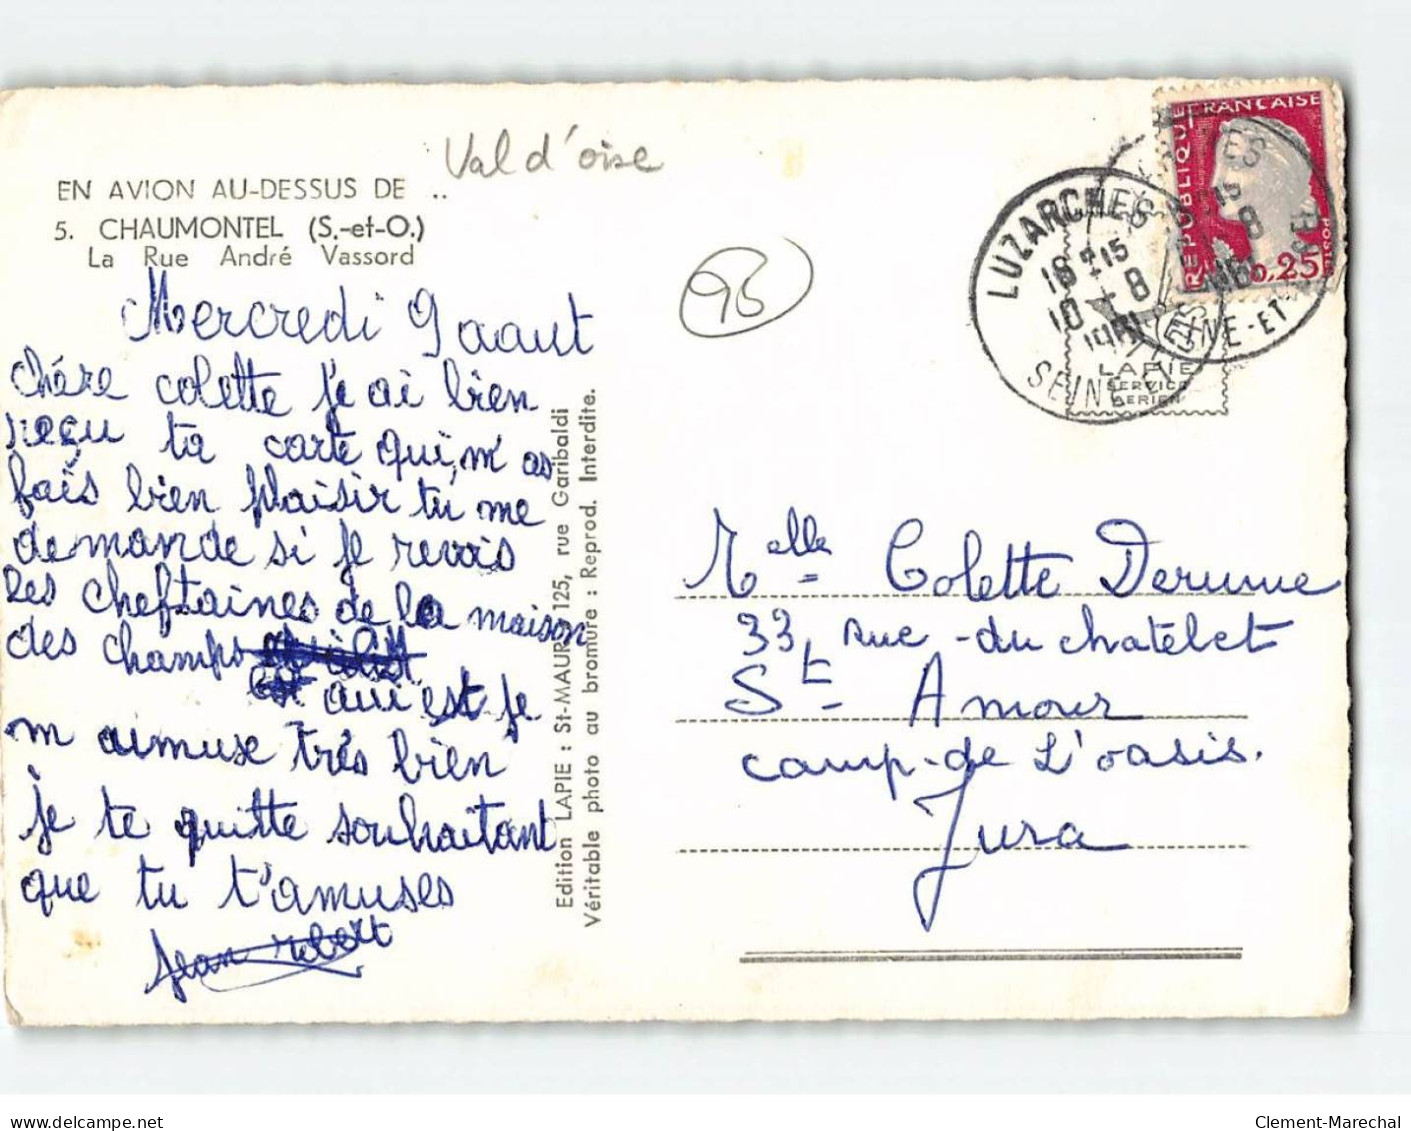 Val d'oise
EN AVION AU-DESSUS DE ..
5. CHAUMONTEL (S.-et-O.)
La Rue André Vassord
95
RÉPUBLIQUE FRANÇAISE
POSTES
0,25
LUZARCHES
16 H 15
10 - 8
1961
SEINE-ET-
LAPIE
SERVICE
AERIEN
Mercredi 9 aaut
Chére colette je ai bien
reçu ta carte qui m'as
fais bien plaisir tu me
demande si je revois
les cheftaines de la maison
des champs
aui est je
m aimuse très bien
je te quitte souhaitant
que tu t'amuses
jean robert
Edition LAPIE : St-MAUR 125, rue Garibaldi
Véritable photo au bromure : Reprod. Interdite.
Melle Colette Derume
33, rue -du chatelet
St- Amour
camp-de L'oasis.
Jura
delcampe.net
Clement-Marechal